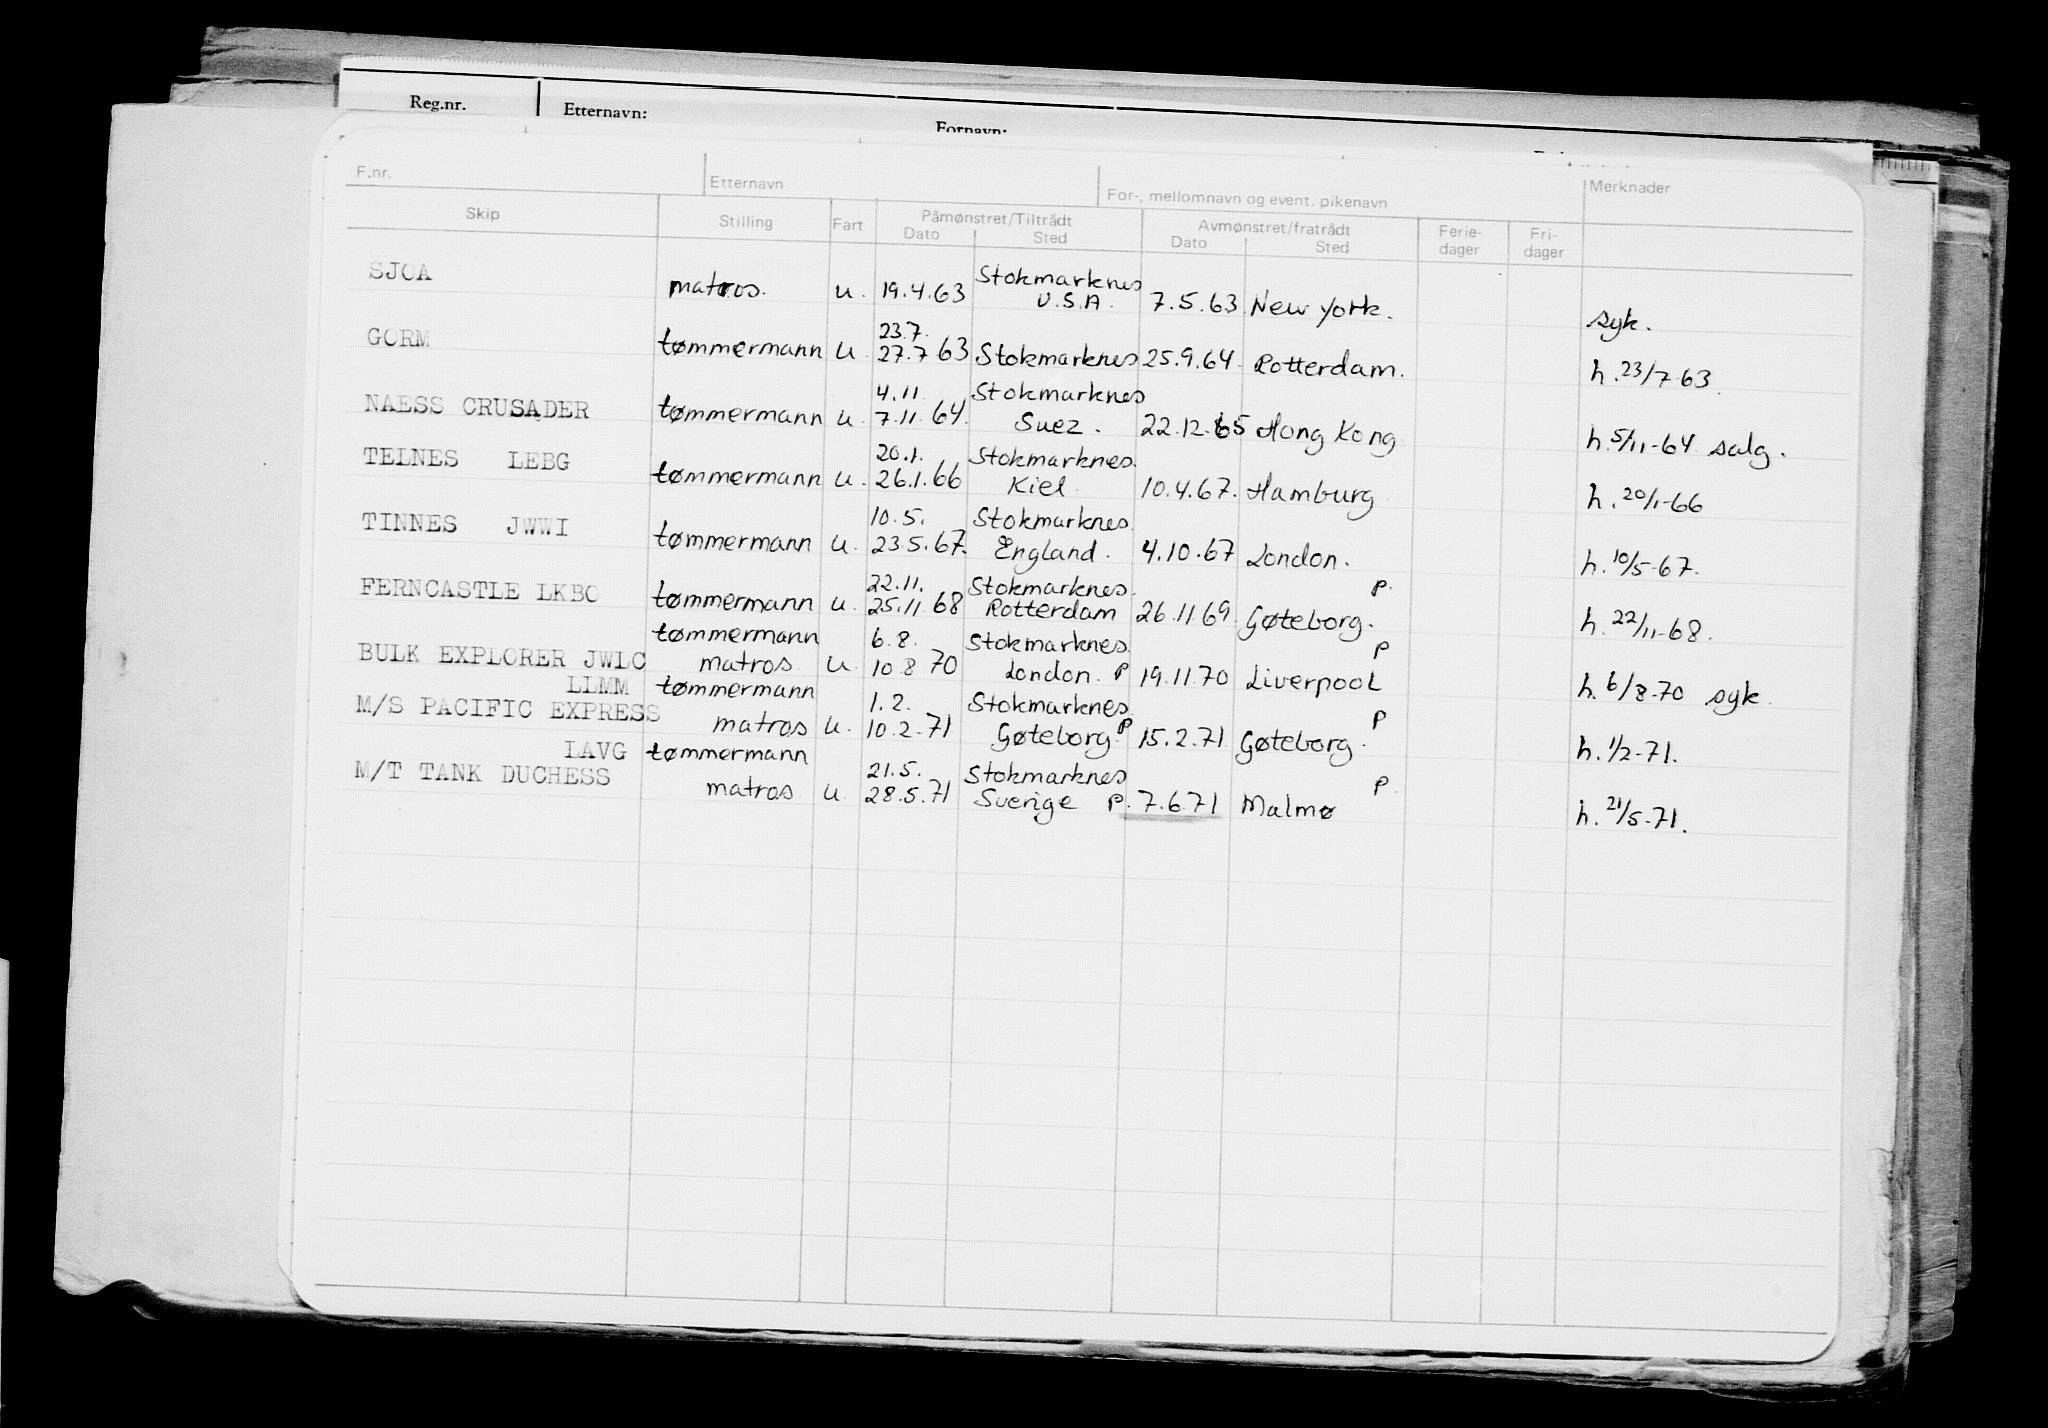 Reg.nr. Etternavn: Fornavn:
F.nr. Etternavn For-, mellomnavn og event. pikenavn Merknader
Skip Stilling Fart Påmønstret/Tiltrådt Avmønstret/fratrådt Ferie- Fri-
Dato Sted Dato Sted dager dager
SJOA matros. u. 19.4.63 Stokmarknes 7.5.63 New York. syk.
U.S.A.
23.7.
GORM tømmermann u 27.7 63 Stokmarknes 25.9.64 Rotterdam. h. 23/7-63.
4.11 Stokmarknes
NAESS CRUSADER tømmermann u. 7.11.64. Suez. 22.12.65 Hong Kong h. 5/11-64 salg.
20.1. Stokmarknes.
TELNES LEBG tømmermann u. 26.1.66 Kiel. 10.4.67. Hamburg h. 20/1-66
10.5. Stokmarknes.
TINNES JWWI tømmermann u. 23.5.67. England. 4.10.67 London. h. 10/5-67.
22.11. Stokmarknes. p.
FERNCASTLE LKBC tømmermann u. 25.11.68 Rotterdam 26.11.69 Gøteborg. h. 22/11-68.
tømmermann 6.8. Stokmarknes. p
BULK EXPLORER JWLC matros u. 10.8 70 London. p 19.11.70 Liverpool h. 6/8-70 syk.
LLMM tømmermann 1.2. Stokmarknes. p
M/S PACIFIC EXPRESS matros u. 10.2.71 Gøteborg. p 15.2.71 Gøteborg. h. 1/2-71.
LAVG tømmermann 21.5. Stokmarknes p.
M/T TANK DUCHESS matros u. 28.5.71 Sverige p. 7.6.71 Malmø h. 21/5-71.